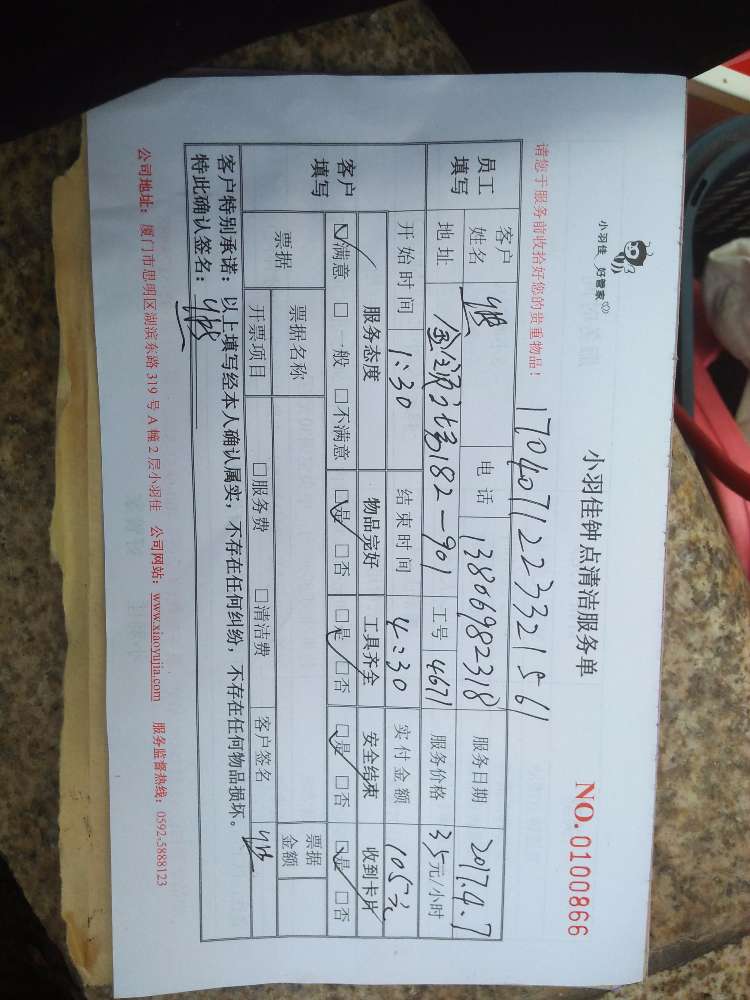 小羽佳 好管家
小羽佳钟点清洁服务单
NO.0100866
请您于服务前收拾好您的贵重物品！
1704071223321561
员工填写
客户姓名
电话 13806982318
服务日期 2017.4.7
地址 182-901
工号 4671
服务价格 35元/小时
开始时间 1:30
结束时间 4:30
实付金额 105元
客户填写
服务态度 物品完好 工具齐全 安全结束 收到卡片
☑满意 □一般 □不满意 ☑是 □否 ☑是 □否 ☑是 □否 ☑是 □否
票据 票据名称 票据金额
开票项目 □服务费 □清洁费 客户签名
客户特别承诺：以上填写经本人确认属实，不存在任何纠纷，不存在任何物品损坏。
特此确认签名：
公司地址：厦门市思明区湖滨东路319号A幢2层小羽佳 公司网站：www.xiaoyujia.com 服务监督热线：0592-5888123